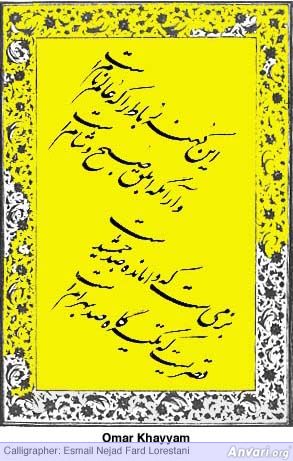 این کهنه رباط را که عالم نام است
وآرامگه ابلق صبح و شام است
بزمی ست که وامانده صد جمشید است
قصریست که تکیه گاه صد بهرام است
Omar Khayyam
Calligrapher: Esmail Nejad Fard Lorestani
Anvari.org